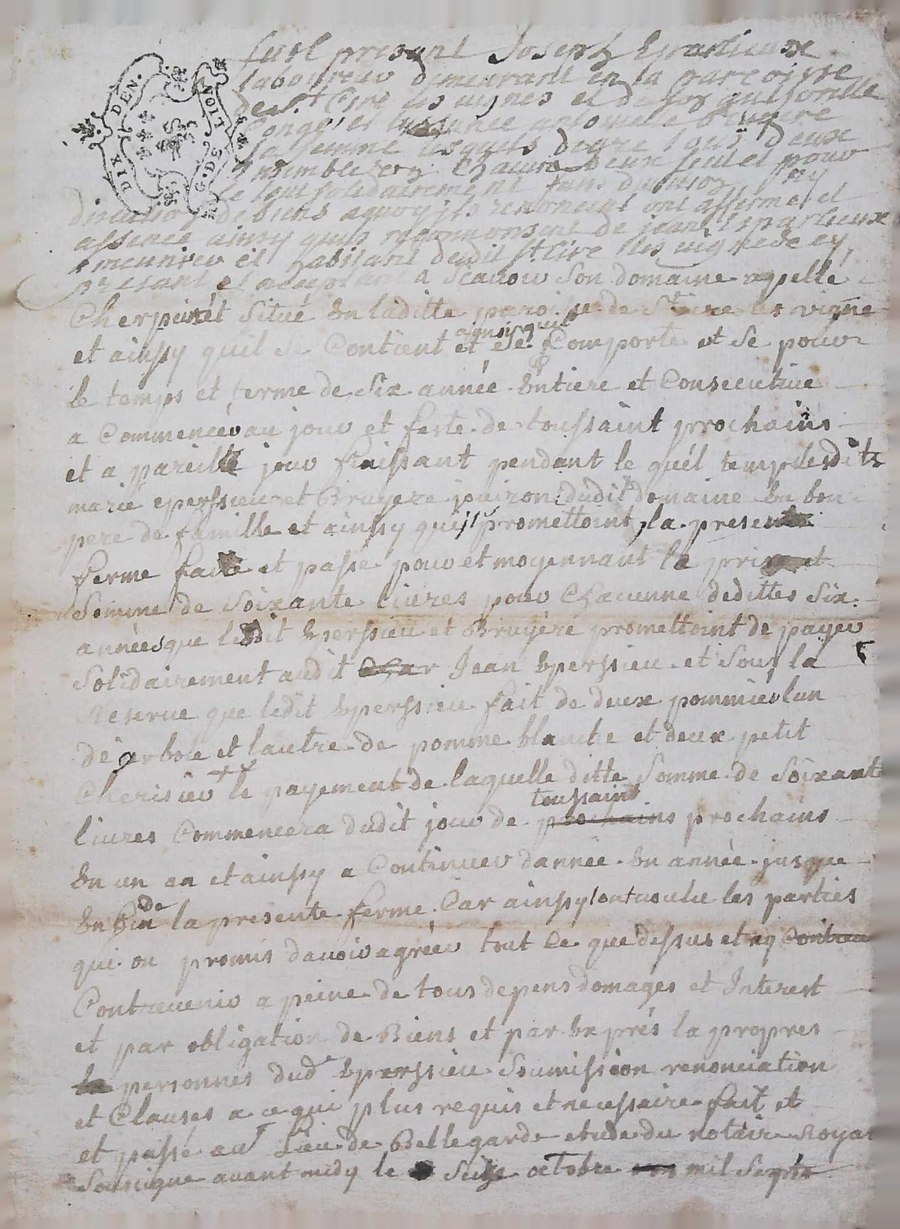 DIX DEN.
G. DE LION
fust present Joseph Eparsieux
laboureur demeurant en la parroisse
de St Cire les vignes et de son
congé et Antoinette Bruyere
sa femme lesquels de gré tout deux
ensemble et chacun deux seul et pour
le tout solidairement sans division ny
discution de biens a quoy ils renoncent ont affermé et
assencé ainsy quils reconnoissent de jean Eparsieux
et habitant dudit St Cire les vignes icy
present et acceptant a scavoir son domaine appellé
Cherpinét situé En laditte paroisse de St Cire les vigne
et ainsy quil se Contient et ainsy quil se Comporte et se pour
le temps et terme de six année Entiere et Consecutive
a Commencer au jour et feste de toussaint prochains
et a pareille jour finissant pendant le quél temp lesdits
marié eperssieu et Bruyere jouiron dudit domaine En bon
pere de famille et ainssy quil promettoint, la presente
ferme faite et passé pour et moyennant le prix et
somme de Soixante livres pour Chacunne dedittes Six
années que ledit Eperssieu et Bruyere promettoint de payer
Solidairement audit Jean Eperssieu et Sous la
Reserve que ledit Eperssieu fait de deux pommier lun
de et lautre de pomme blanche et deux petit
Cherisier le payement de laquelle ditte Somme de Soixante
livres Commencera dudit jour de toussaint prochains prochains
En un an et ainssy a Continuer dannée En année jusque
En fin de la presente ferme. Car ainssy les parties
qui on promis davoir agréer tout Ce que dessus et ny
Contrevenir a peine de tous depens domages et Interest
et par obligation de Biens et par Exprés la propres
personnes dud. Eperssieu Soumission renonciation
et Clauses a ce qui plus requis et necessaire fait et
et passé au Lieu de Bellegarde etude du notaire Royal
Soussigne avant midy le Seize octobre mil Septs